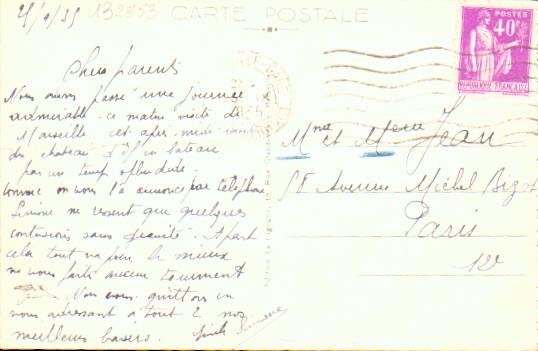 132853
CARTE POSTALE
POSTES
40c
REPUBLIQUE FRANÇAISE
Chers parents
Nous avons passé une journée
admirable ce matin visite de
Marseille cet après midi
du chateau d'If en bateau
par un temps splendide.
comme on vous l'a annoncé par téléphone
Simone ne ressent que quelques
contusions sans gravité. Apart
cela tout va pour le mieux
ne vous faites aucun tourment
Nous vous quittons en
vous adressant à tout 2 nos
meilleurs baisers. Simone
Mme et Jean
58 Avenue Michel Bizot
Paris
12e